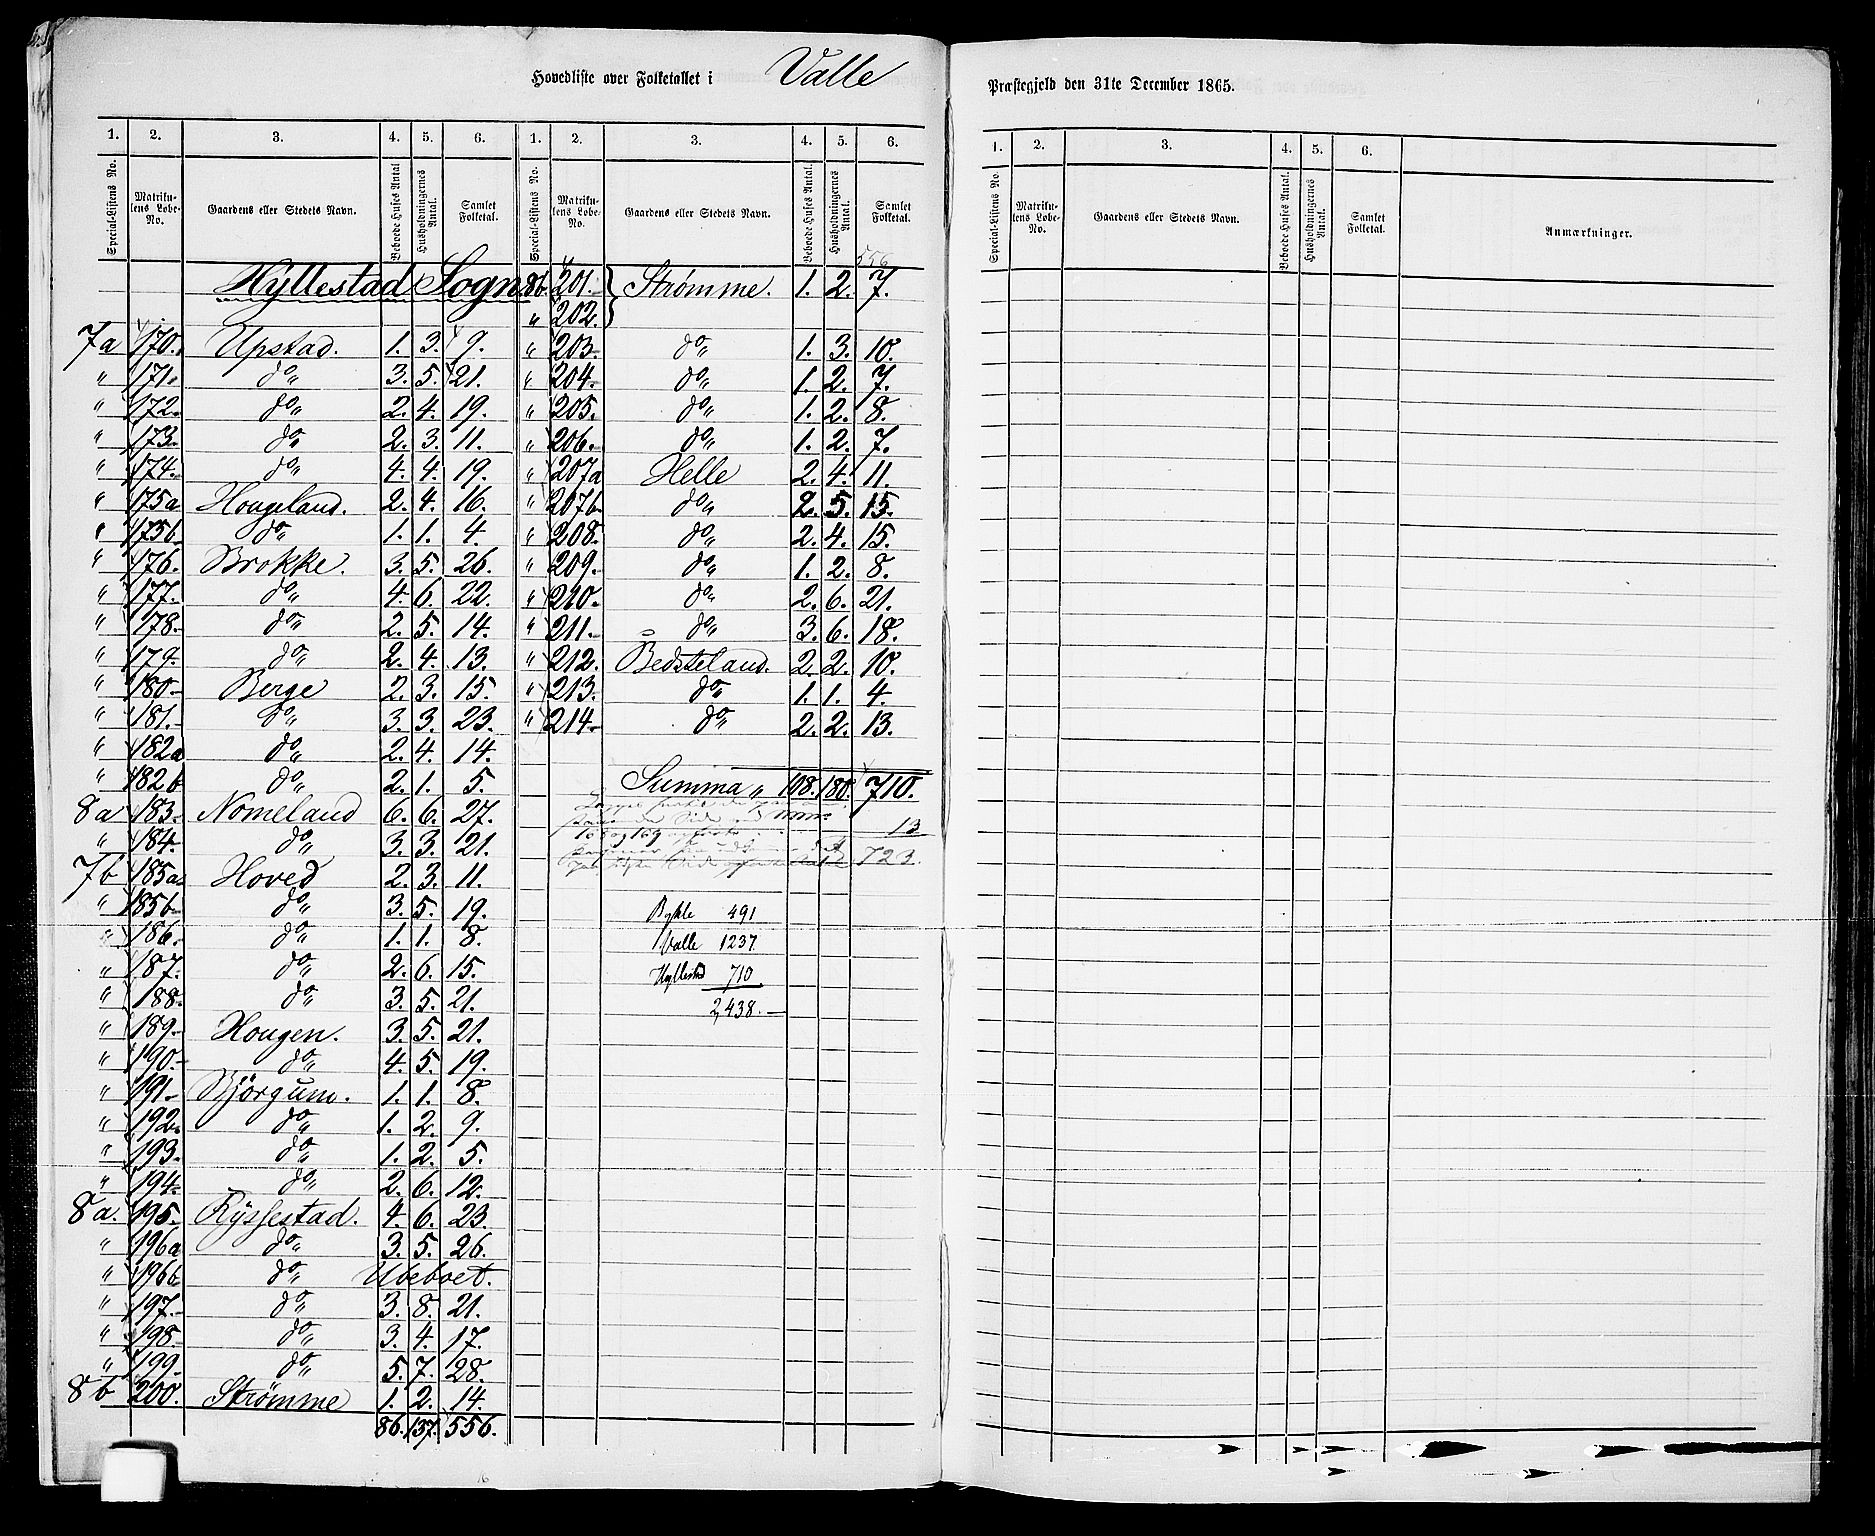 Hovedliste over Folketallet i Valle Præstegjeld den 31te December 1865.
1. 2. 3. 4. 5. 6. 1. 2. 3. 4. 5. 6.
Special-Listens No. Matrikulens Løbe-No. Gaardens eller Stedets Navn. Beboede Huses Antal Husholdningernes Antal. Samlet Folketal. Special-Listens No. Matrikulens Løbe-No. Gaardens eller Stedets Navn. Beboede Huses Antal. Husholdningernes Antal. Samlet Folketal.
556
Hyllestad Sogn
7a 170. Upstad. 1. 3. 9.
" 171. do„ 3. 5. 21.
" 172. do„ 2. 4. 19.
" 173. do„ 2. 3. 11.
" 174. do„ 4. 4. 19.
" 175a Hougeland. 2. 4. 16.
" 175b do„ 1. 1. 4.
" 176. Brokke. 3. 5. 26.
" 177. do„ 4. 6. 22.
" 178. do„ 2. 5. 14.
" 179. do„ 2. 4. 13.
" 180. Berge 2. 3. 15.
" 181. do„ 3. 3. 23.
" 182a do„ 2. 4. 14.
" 182b do„ 2. 1. 5.
8a 183. Nomeland 6. 6. 27.
" 184. do„ 3. 3. 21.
7b 185a Hoved 2. 3. 11.
" 185b do„ 3. 5. 19.
" 186. do„ 1. 1. 8.
" 187. do„ 2. 6. 15.
" 188. do„ 3. 5. 21.
" 189. Hougen. 3. 5. 21.
" 190. do„ 4. 5. 19.
" 191. Björgum. 1. 1. 8.
" 192. do„ 1. 2. 9.
" 193. do„ 1. 2. 5.
" 194. do„ 2. 6. 12.
8a. 195. Ryssestad. 4. 6. 23.
" 196a do„ 3. 5. 26.
" 196b do„ Ubeboet.
" 197. do„ 3. 8. 21.
" 198. do„ 3. 4. 17.
" 199. do„ 5. 7. 28.
8b 200. Strømme 1. 2. 14.
86. 137. 556.
8b. 201. Strømme. 1. 2. 7.
" 202.
" 203. do„ 1. 3. 10.
" 204. do„ 1. 2. 7.
" 205. do„ 1. 2. 8.
" 206. do„ 1. 2. 7.
" 207a Helle 2. 4. 11.
" 207b do„ 2. 5. 15.
" 208. do„ 2. 4. 15.
" 209. do„ 1. 2. 8.
" 210. do„ 2. 6. 21.
" 211. do„ 3. 6. 18.
" 212. Bedsteland. 2. 2. 10.
" 213. do„ 1. 1. 4.
" 214. do„ 2. 2. 13.
Summa „ 108. 180. 710.
13
168 og 169
723.
Bykle 491
Valle 1237
Hyllestad 710
2,438.
16
1. 2. 3. 4. 5. 6.
Special-Listens No. Matrikulens Løbe-No. Gaardens eller Stedets Navn. Beboede Huses Antal. Husholdningernes Antal. Samlet Folketal. Anmærkninger.